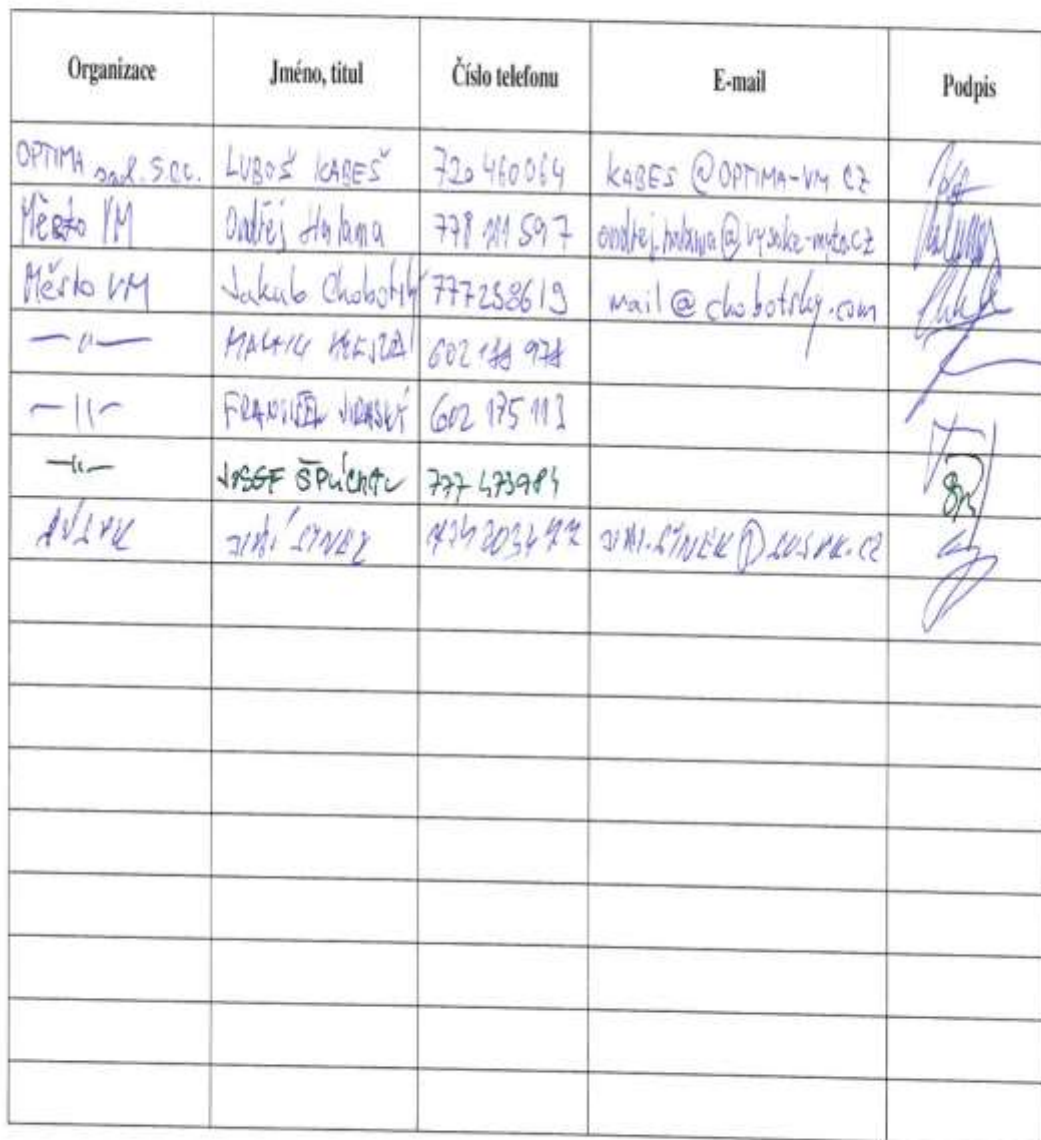 Organizace Jméno, titul Číslo telefonu E-mail Podpis
OPTIMA spol. s r.o. LUBOŠ KABEŠ 720 460064 KABES @ OPTIMA-VM CZ
Město VM Ondřej Halama 778 111 597 ondrej.halama@vysoke-myto.cz
Město VM Jakub Chobotský 777258619 mail@chobotsky.com
—"— 602 188 978
—"— FRANTIŠEK JIRASKÝ 602 175 113
—"— JOSEF ŠPLÍCHAL 777 473984
JIŘÍ SÝNEK